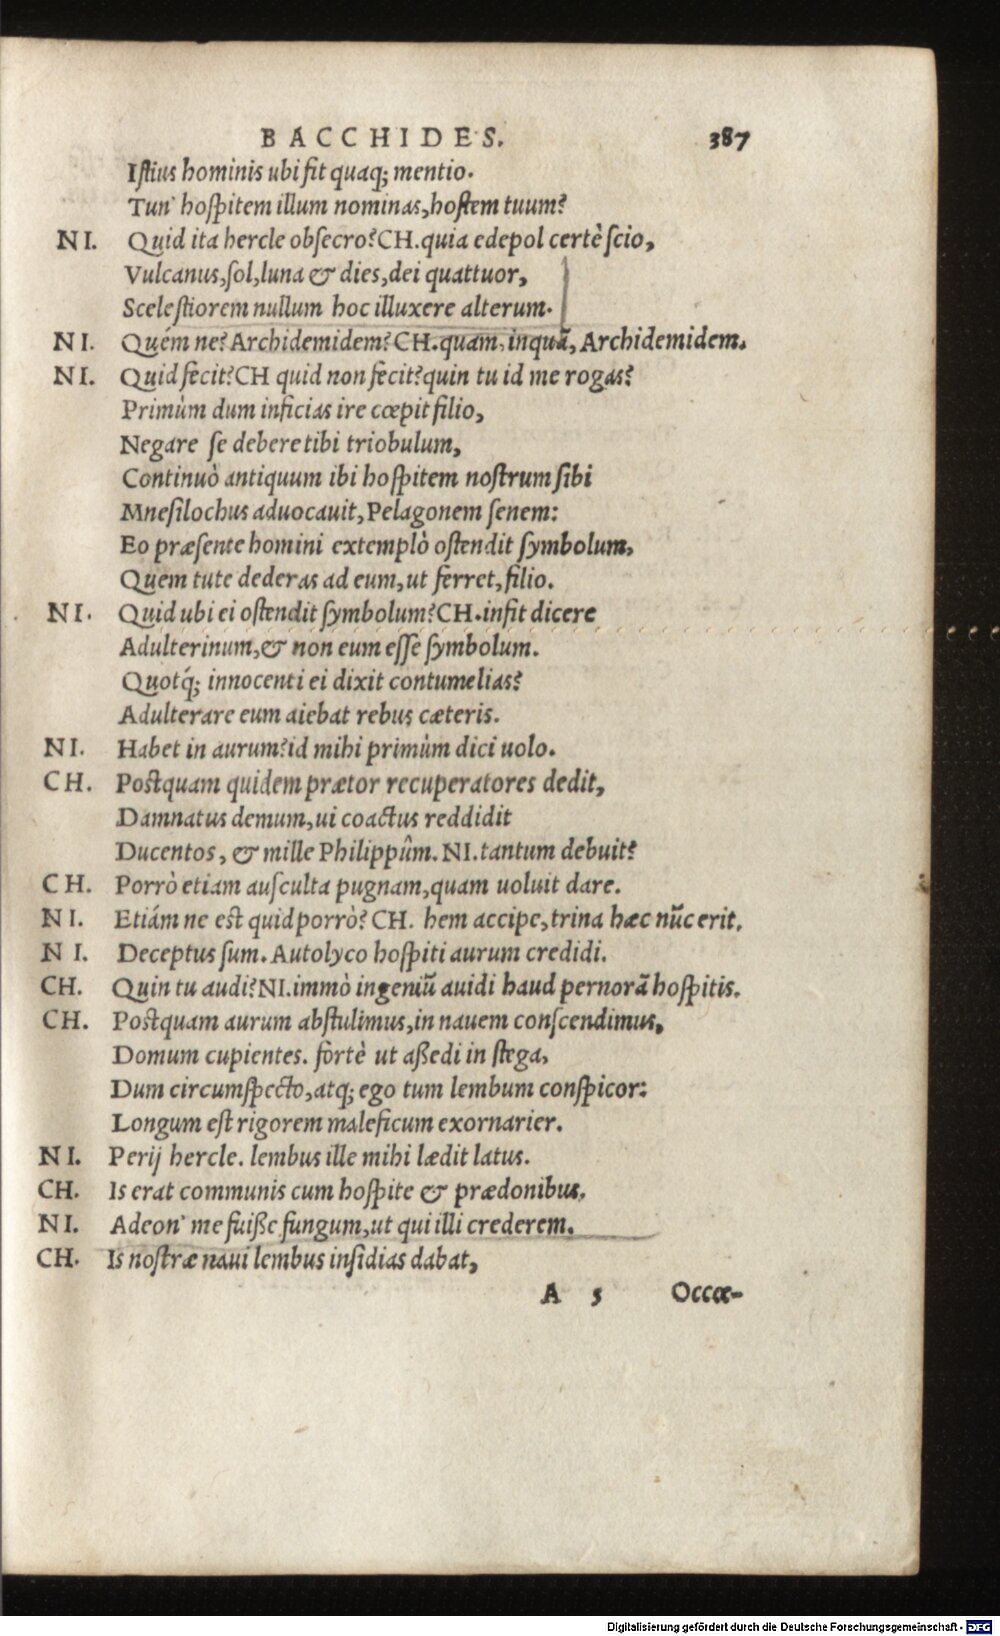 BACCHIDES. 387
Istius hominis ubi fit quaq; mentio.
Tun' hospitem illum nominas,hostem tuum?
NI. Quid ita hercle obsecro?CH.quia edepol certè scio,
Vulcanus,sol,luna & dies,dei quattuor,
Scelestiorem nullum hoc illuxere alterum.
NI. Quém ne?Archidemidem?CH.quam,inquã,Archidemidem.
NI. Quid fecit?CH quid non fecit?quin tu id me rogas?
Primùm dum inficias ire cœpit filio,
Negare se debere tibi triobulum,
Continuò antiquum ibi hospitem nostrum sibi
Mnesilochus aduocauit,Pelagonem senem:
Eo præsente homini extemplò ostendit symbolum,
Quem tute dederas ad eum,ut ferret,filio.
NI. Quid ubi ei ostendit symbolum?CH.infit dicere
Adulterinum,& non eum esse symbolum.
Quotq́; innocenti ei dixit contumelias?
Adulterare eum aiebat rebus cæteris.
NI. Habet in aurum?id mihi primùm dici uolo.
CH. Postquam quidem prætor recuperatores dedit,
Damnatus demum,ui coactus reddidit
Ducentos, & mille Philippûm.NI.tantum debuit?
CH. Porrò etiam ausculta pugnam,quam uoluit dare.
NI. Etiám ne est quid porrò?CH. hem accipe,trina hæc nũc erit.
NI. Deceptus sum.Autolyco hospiti aurum credidi.
CH. Quin tu audi?NI.immò ingeniũ auidi haud pernorã hospitis.
CH. Postquam aurum abstulimus,in nauem conscendimus,
Domum cupientes. fortè ut aßedi in stega,
Dum circumspecto,atq; ego tum lembum conspicor:
Longum est rigorem maleficum exornarier.
NI. Perij hercle. lembus ille mihi lædit latus.
CH. Is erat communis cum hospite & prædonibus.
NI. Adeon' me fuiße fungum,ut qui illi crederem.
CH. Is nostræ naui lembus insidias dabat,
A 5 Occœ-
Digitalisierung gefördert durch die Deutsche Forschungsgemeinschaft - DFG